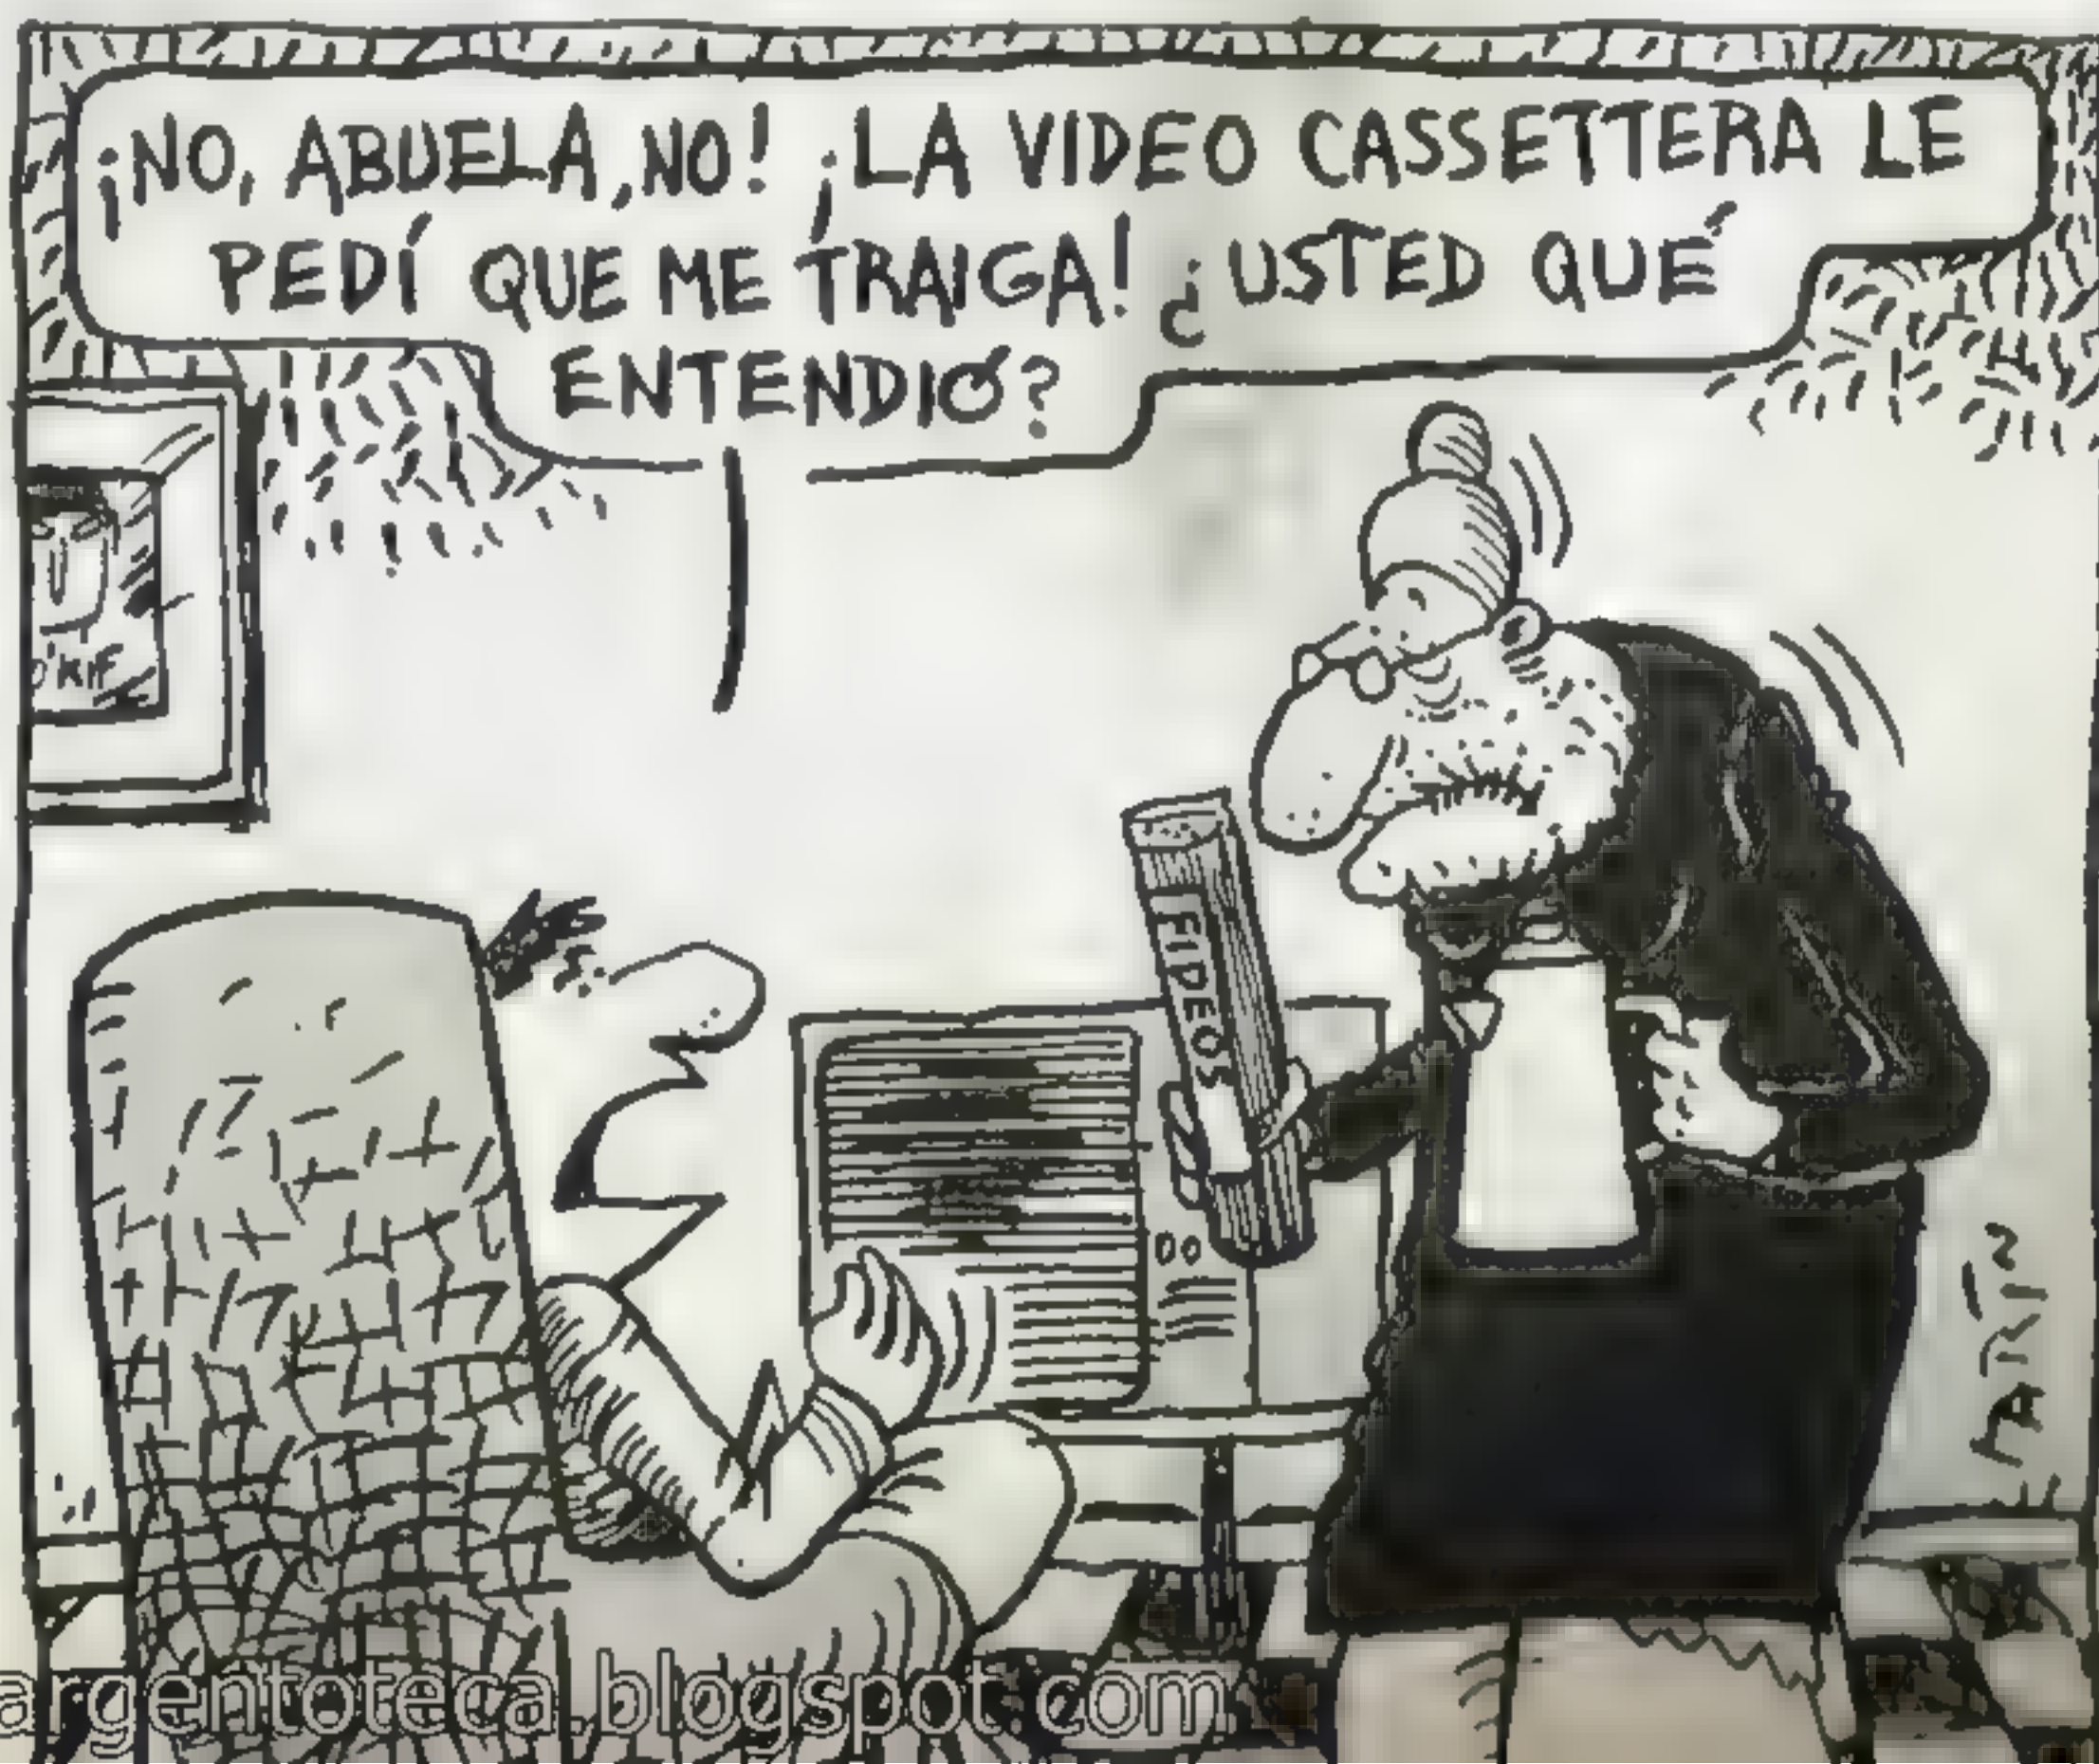 ¡NO, ABUELA, NO! ¡LA VIDEO CASSETTERA LE
PEDÍ QUE ME TRAIGA! ¿USTED QUÉ
ENTENDIÓ?
O'KIF
FIDEOS
argentoteca.blogspot.com